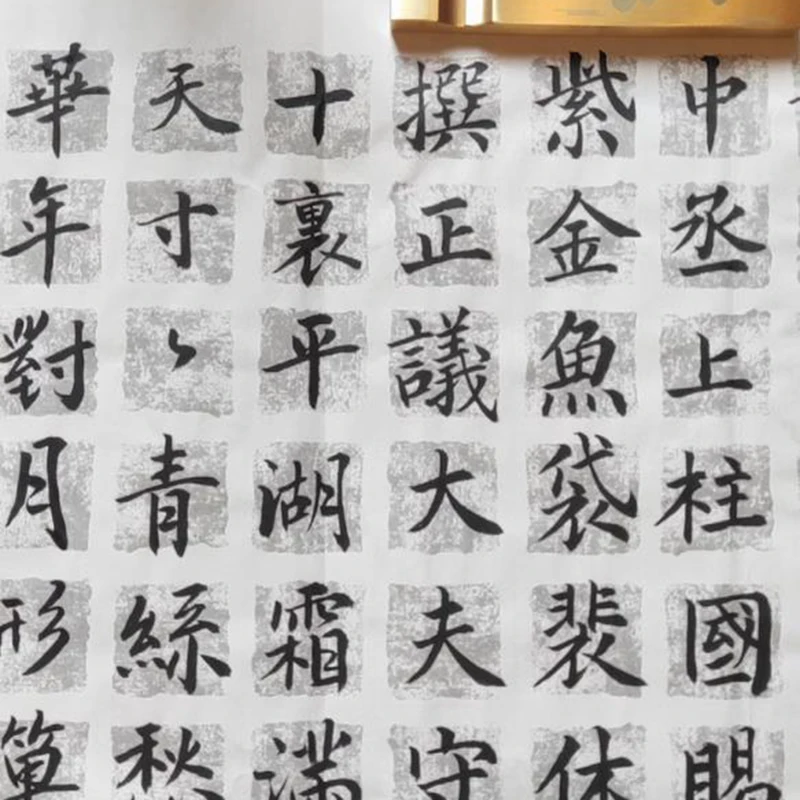 中丞上柱國賜
紫金魚袋裴休
撰正議大夫守
十裏平湖霜滿
天寸〻青絲愁
華年對月形單